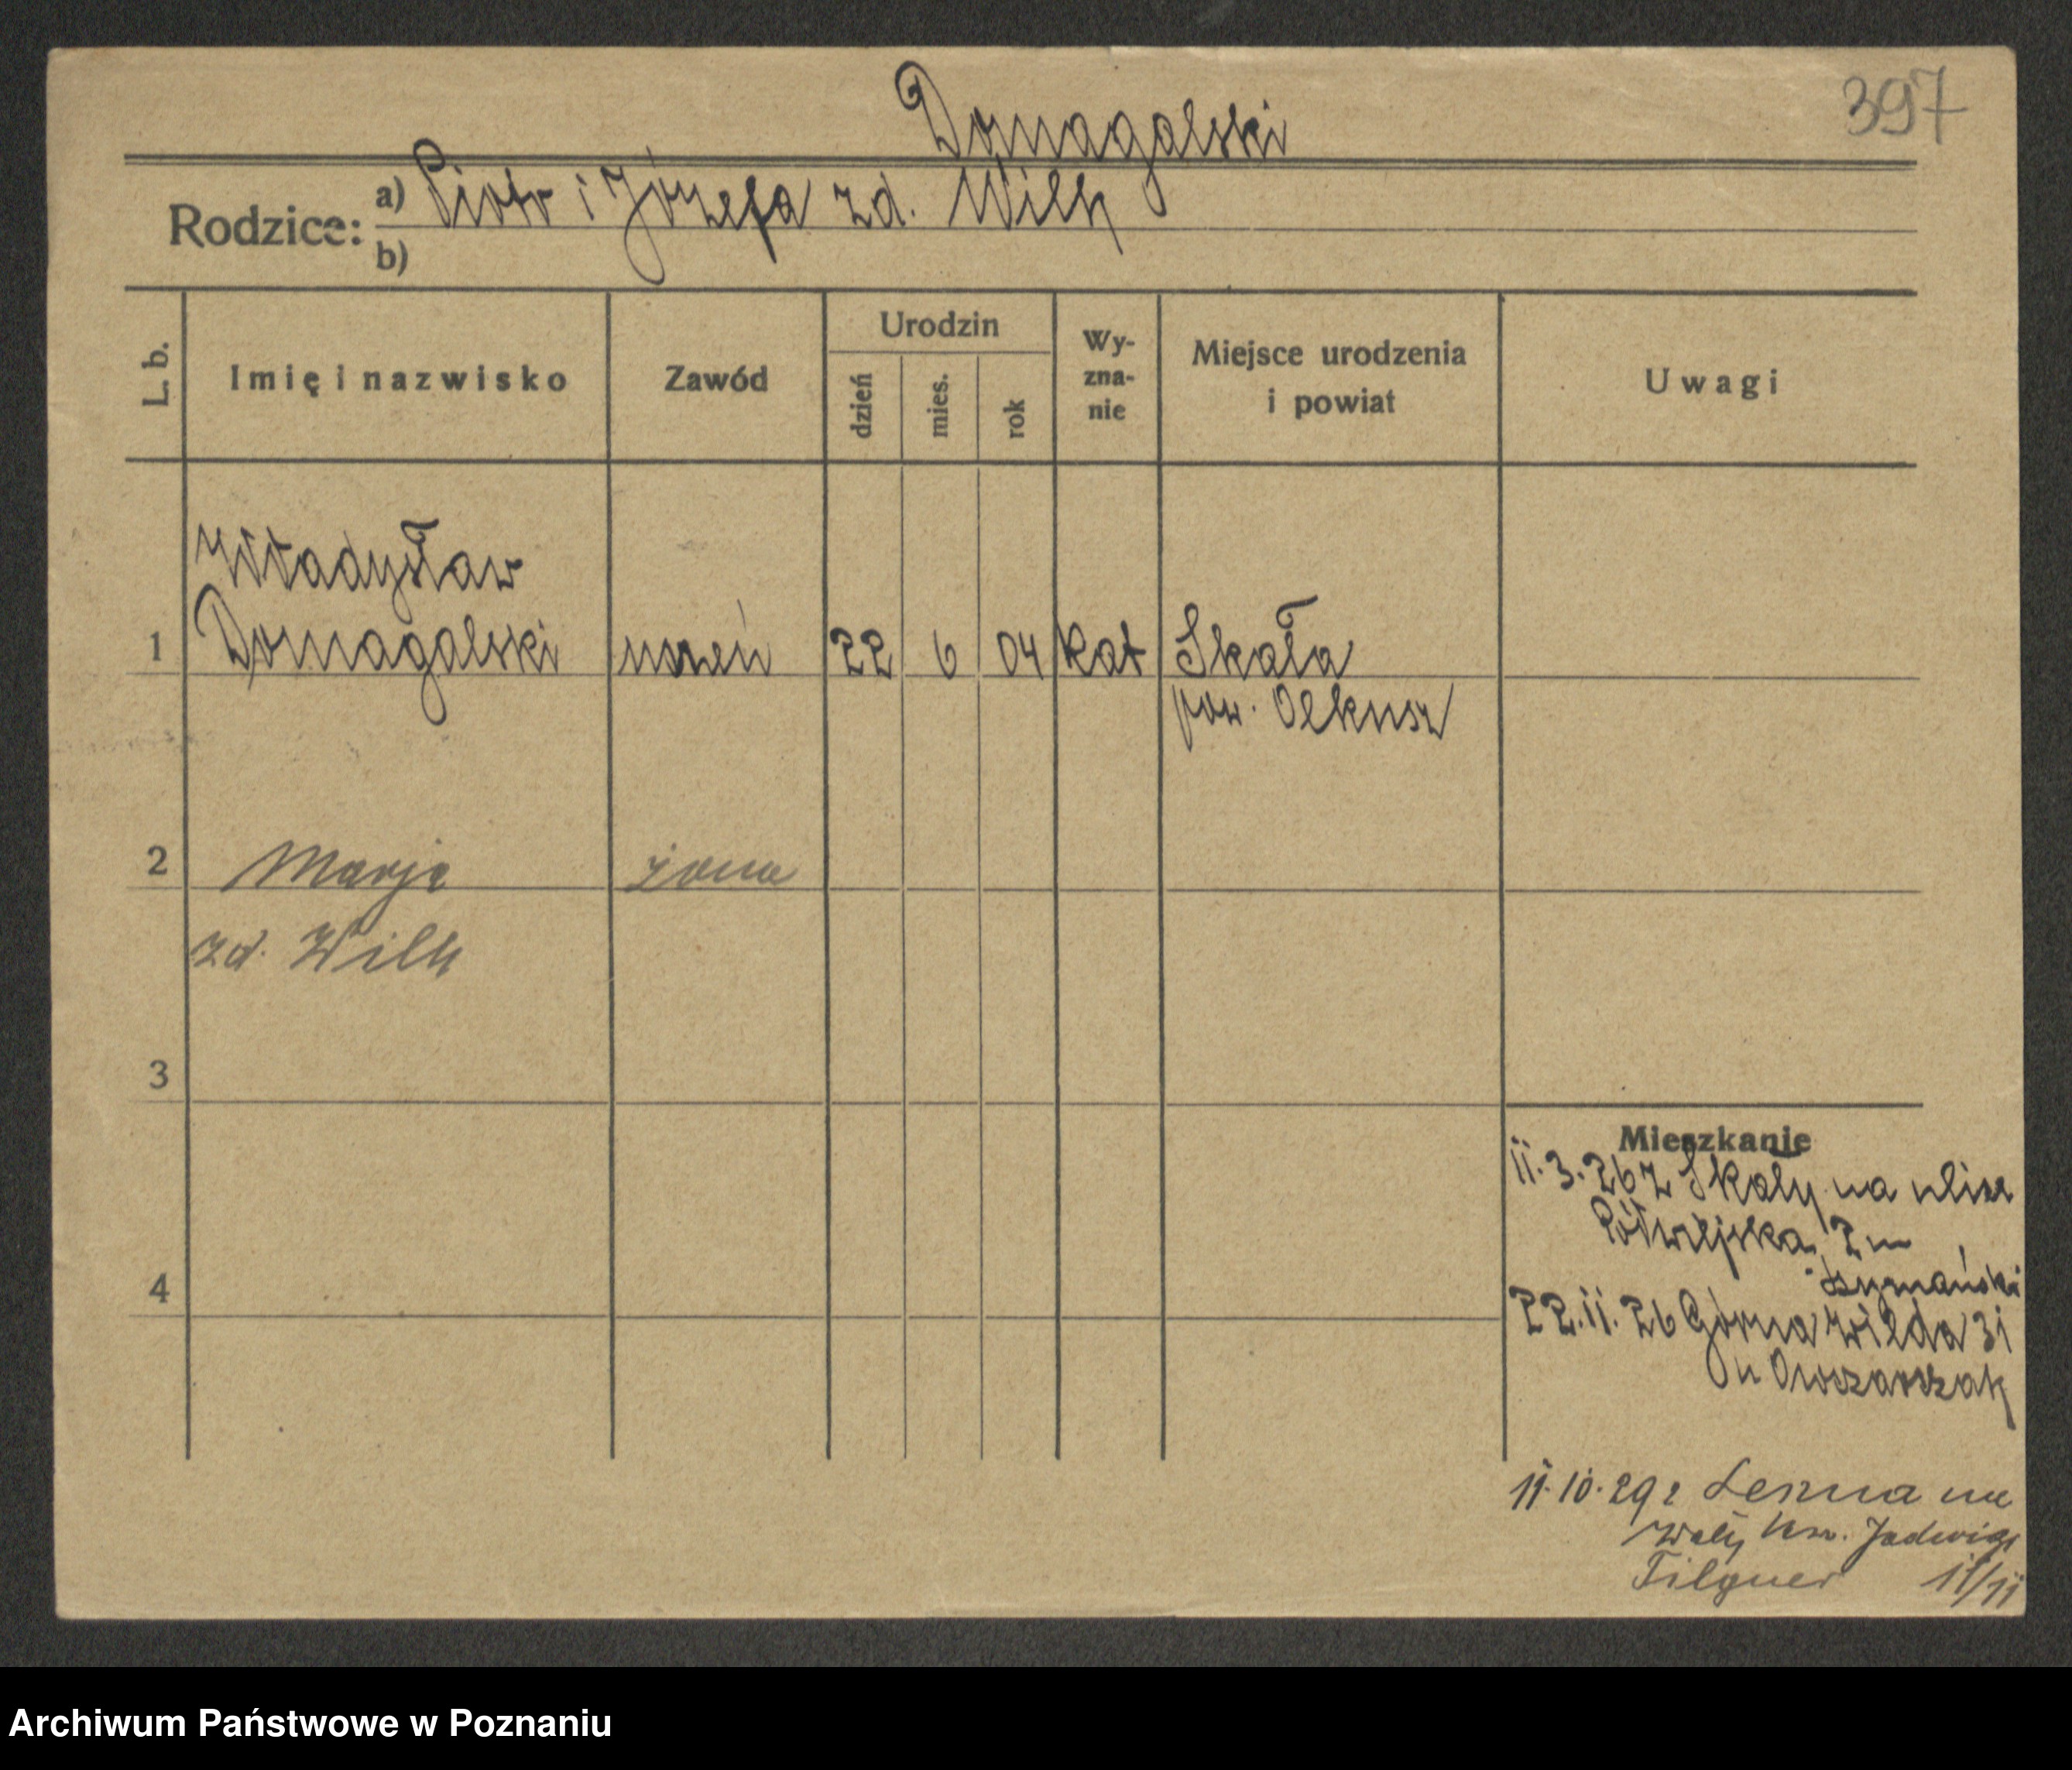 397
Domagalski
Rodzice: a) Piotr i Józefa zd. Wilk
b)
L. b.
Imię i nazwisko
Zawód
Urodzin
dzień
mies.
rok
Wy-
zna-
nie
Miejsce urodzenia
i powiat
Uwagi
Władysław
1 Domagalski uczeń 22 6 04 kat Skała
pow. Olkusz
2 Marja żona
zd. Wilk
3
Mieszkanie
11.3.26 z Skały na ulice
Półwiejska 2
4
22.11.26 Górna Wilda 31
u Owczarczak
11.10.29 z Leszna na
Wały Kr. Jadwigi
Filguer 11/11
Archiwum Państwowe w Poznaniu